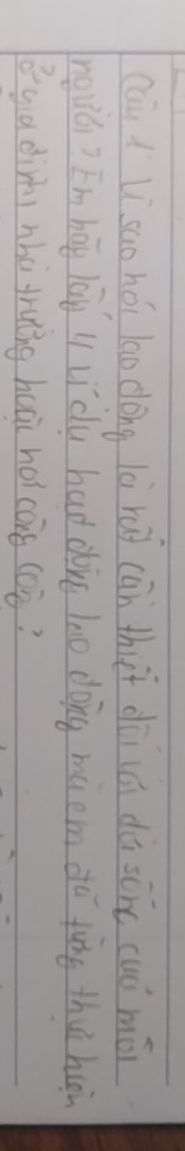 Câu 1: Vì sao nói lao động là rất cần thiết đối với đời sống của mỗi
người? Em hãy lấy 4 ví dụ hoạt động lao động mà em đã từng thực hiện
ở gia đình, nhà trường hoặc nơi công cộng?